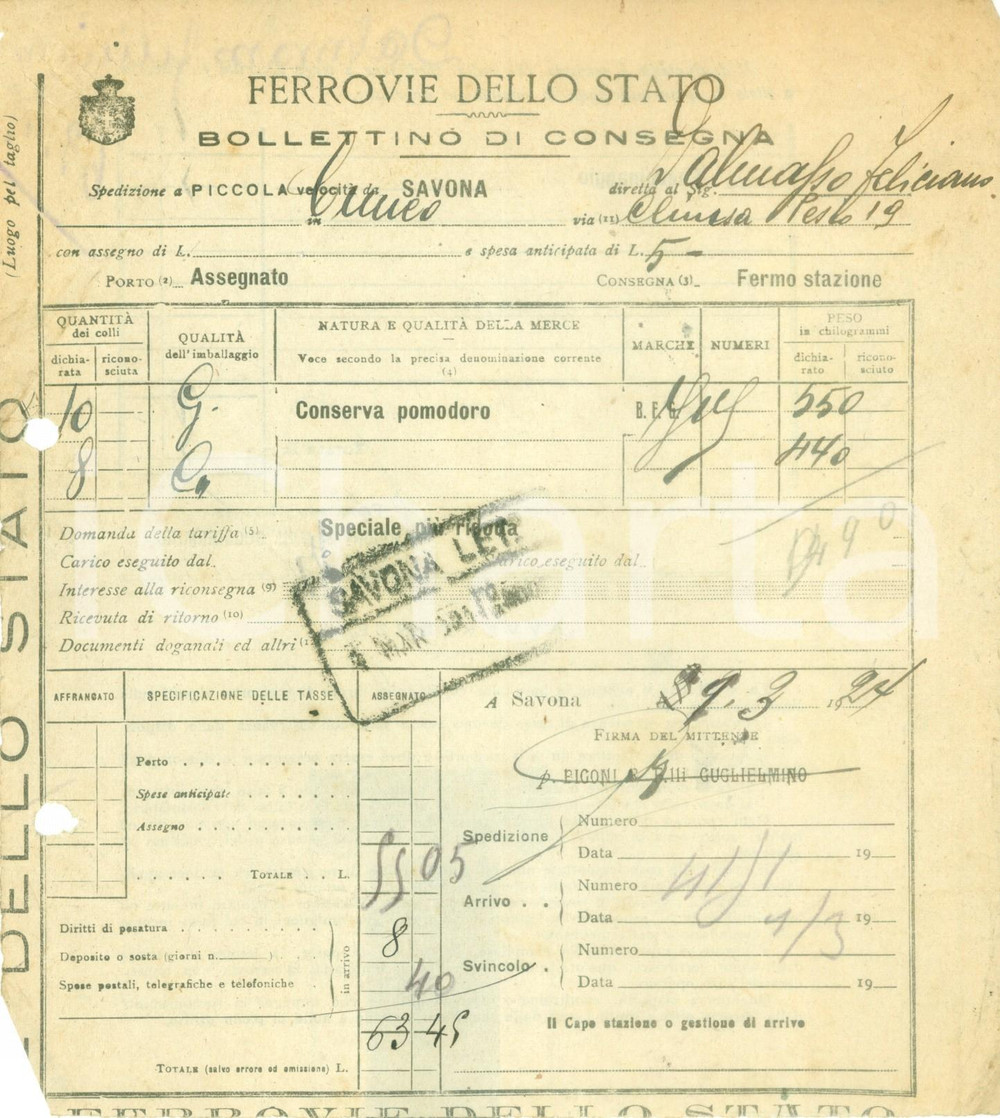 (Luogo pel taglio)
FERROVIE DELLO STATO
BOLLETTINO DI CONSEGNA
Spedizione a PICCOLA velocità da SAVONA diretta al Sig. Dalmasso Feliciano
in Cuneo via (11) Chiusa Pesio 19
con assegno di L. e spesa anticipata di L. 5-
PORTO (2) Assegnato CONSEGNA (3) Fermo stazione
QUANTITÀ dei colli QUALITÀ dell'imballaggio NATURA E QUALITÀ DELLA MERCE MARCHE NUMERI PESO in chilogrammi
dichiarata riconosciuta Voce secondo la precisa denominazione corrente (4) dichiarato riconosciuto
10 G. Conserva pomodoro B. F. G. 550
8 Ca 440
Domanda della tariffa (5) Speciale più ridotta
Carico eseguito dal Scarico eseguito dal
990
Interesse alla riconsegna (9)
Ricevuta di ritorno (10)
Documenti doganali ed altri
SAVONA LET.
MAR
Charta
AFFRANCATO SPECIFICAZIONE DELLE TASSE ASSEGNATO
A Savona 9.3 1924
FIRMA DEL MITTENTE
p. PIGONI & F.lli GUGLIELMINO
Porto
Spese anticipate
Assegno
TOTALE L. 55 05
Spedizione Numero
Data 19
Arrivo Numero
Data 19
Svincolo Numero
Data 19
Diritti di posatura 8
Deposito o sosta (giorni n. )
Spese postali, telegrafiche e telefoniche 40
in arrivo
63 45
TOTALE (salvo errore ed omissione) L.
Il Capo stazione o gestione di arrivo
DELLO STATO
FERROVIE DELLO STATO